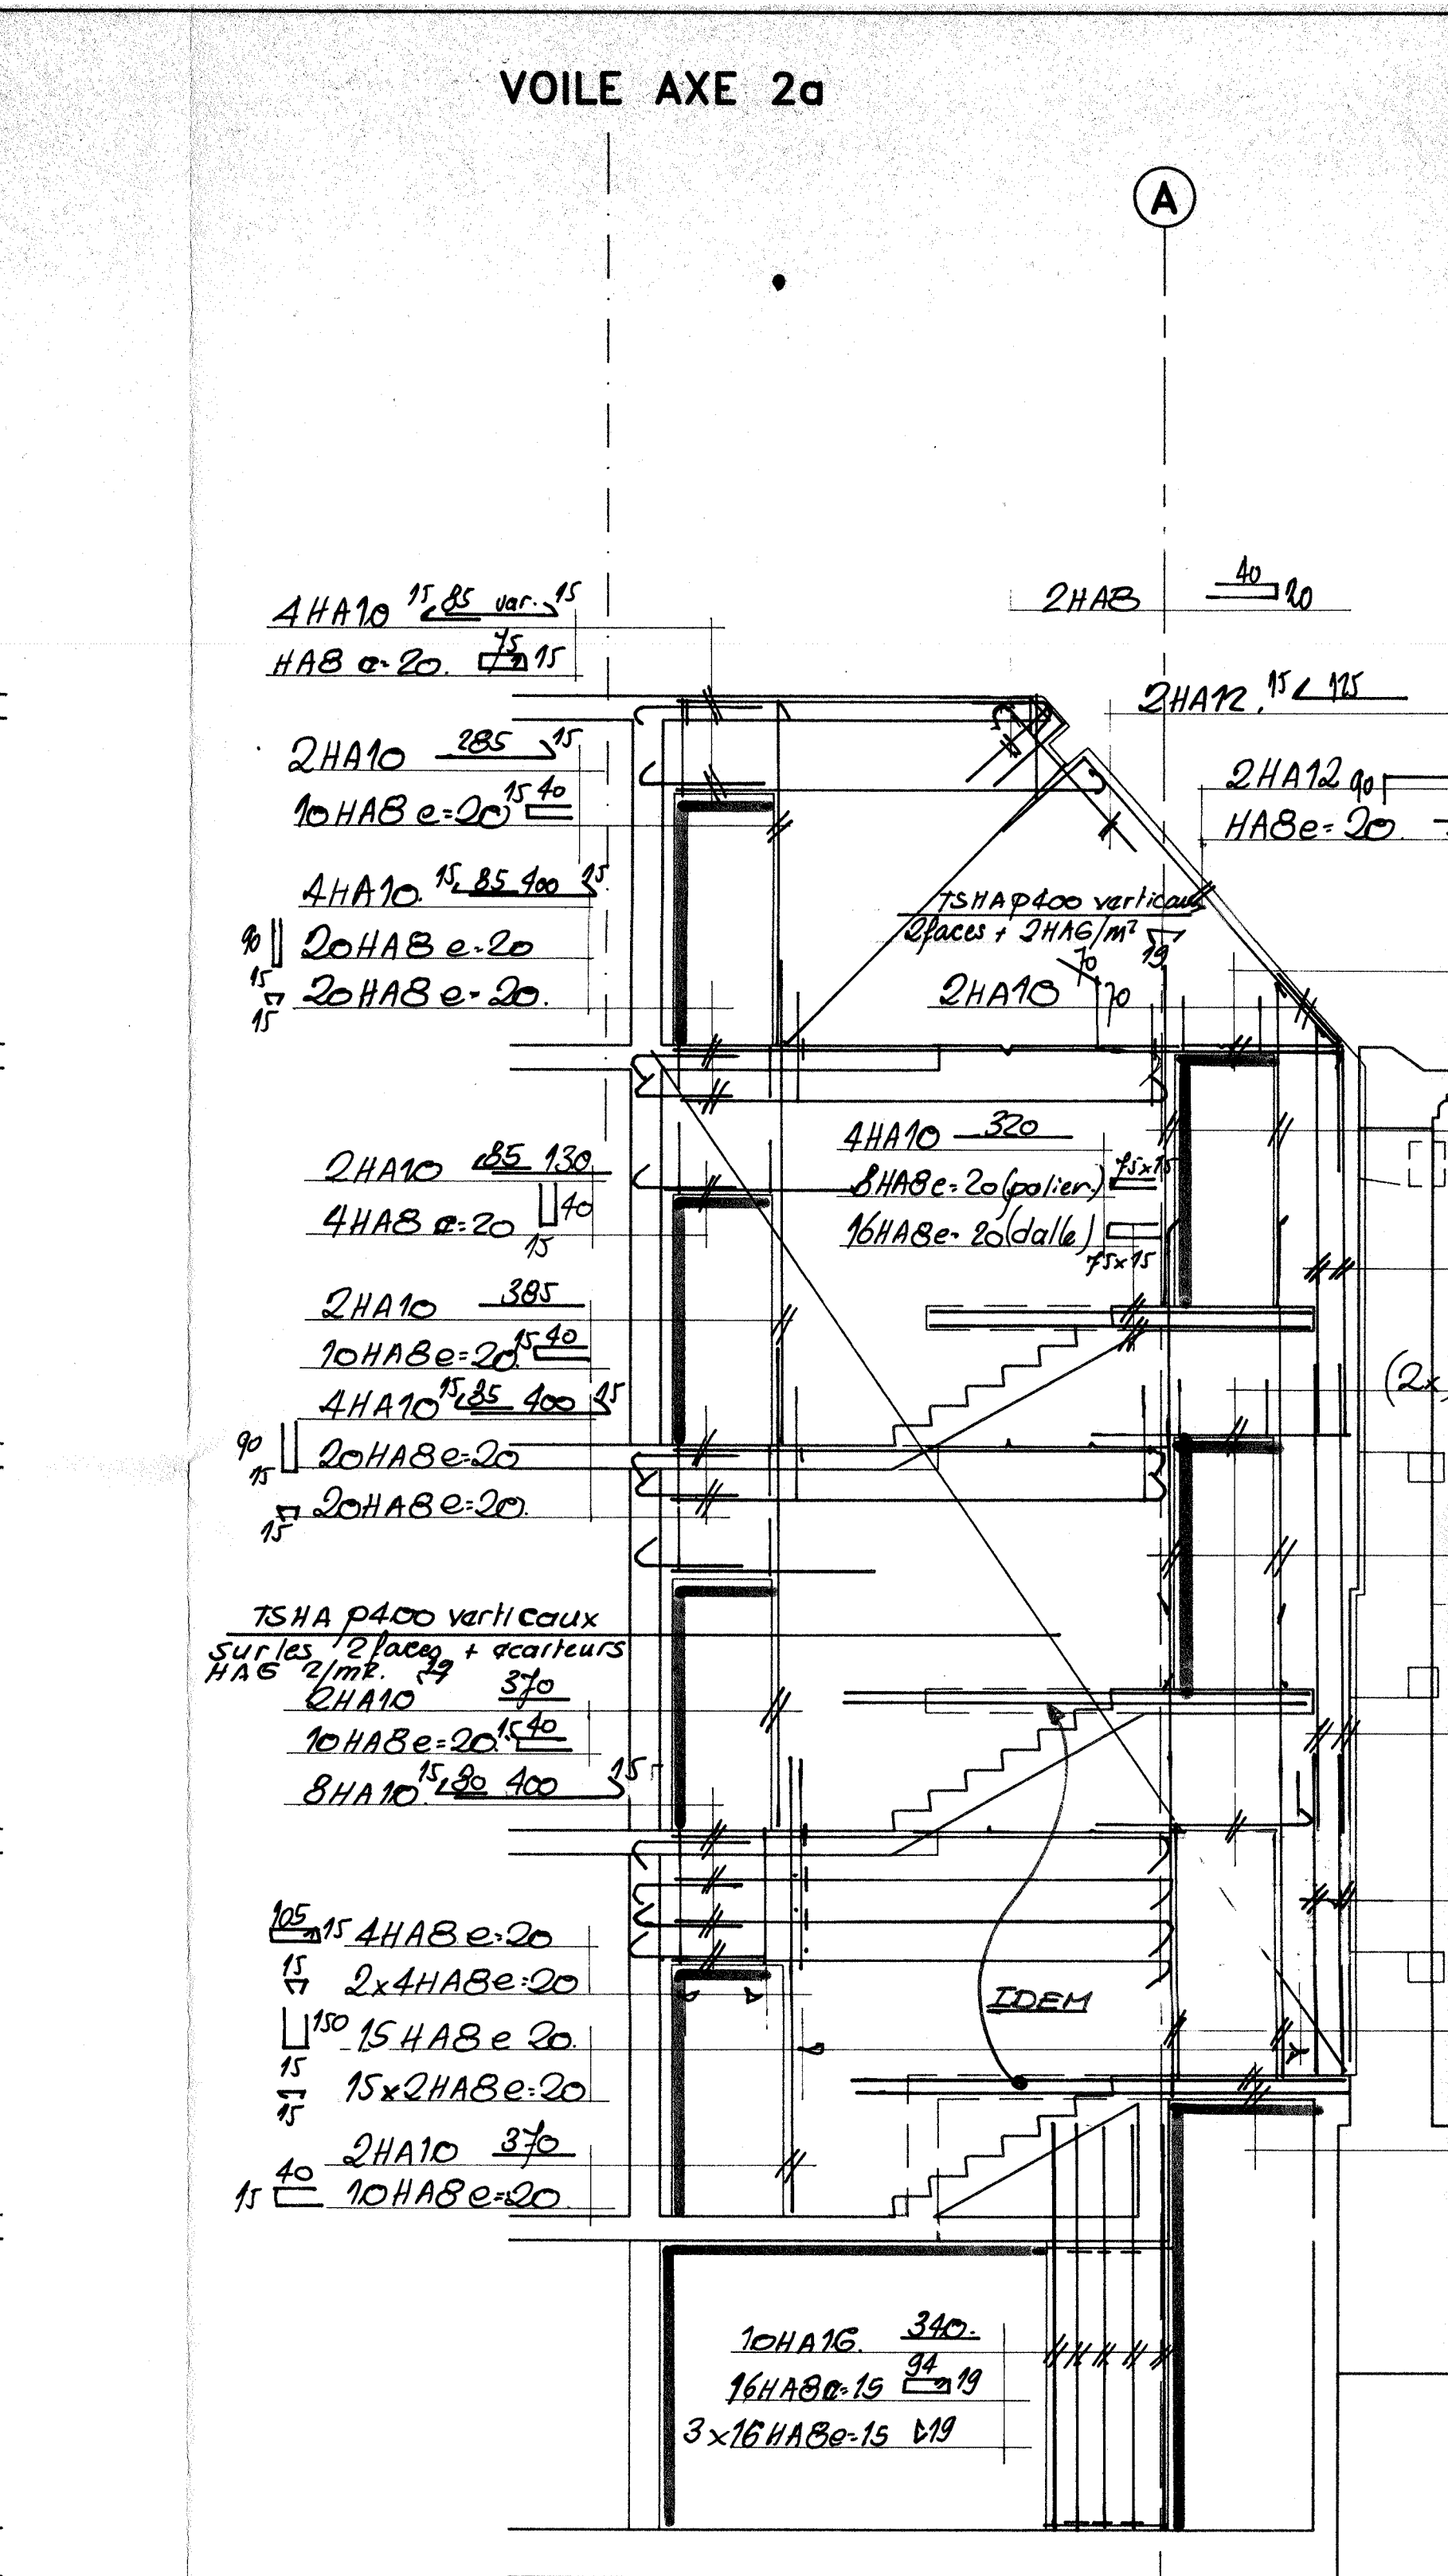 VOILE AXE 2a
A
4HA10 15 85 var. 15
HA8 e=20. 75 15
2HA8 40 20
2HA12. 15 125
2HA10 285 15
10HA8 e=20 15 40
2HA12 90
HA8e=20.
4HA10. 15 85 400 15
90 20HA8 e=20
15
15 20HA8 e=20.
TSHA P400 verticaux
2faces + 2HA6/m² 19
2HA10 70 70
4HA10 320
8HA8e=20(palier) 75x15
16HA8e=20(dalle)
75x15
2HA10 85 130
4HA8 e=20 40
15
2HA10 385
10HA8e=20. 15 40
(2x
4HA10 15 85 400 15
90 20HA8e=20
15
20HA8e=20.
15
TSHA P400 verticaux
sur les 2 faces + écarteurs
HA6 2/m². 19
2HA10 370
10HA8e=20. 15 40
8HA10. 15 80 400 15
105 15 4HA8 e=20
15 2x4HA8e=20
150 15HA8 e 20.
15
15x2HA8e=20
15
IDEM
2HA10 370
40
15 10HA8e=20
10HA16. 340.
16HA8e=15 94 19
3x16HA8e=15 19